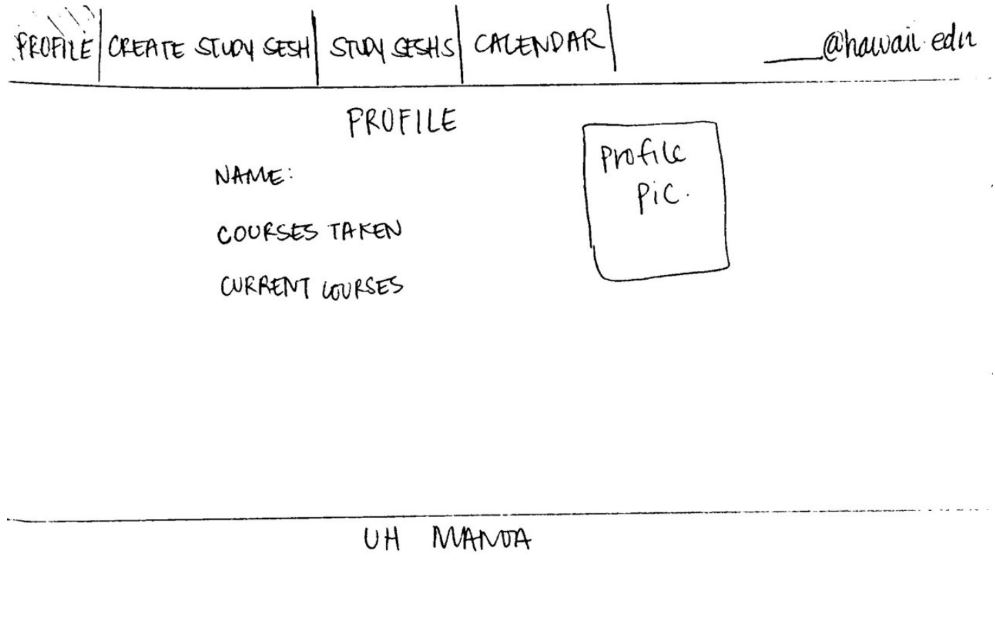 PROFILE CREATE STUDY SESH STUDY SESHS CALENDAR ____@hawaii.edu
PROFILE
Profile
Pic.
NAME:
COURSES TAKEN
CURRENT COURSES
UH MANOA